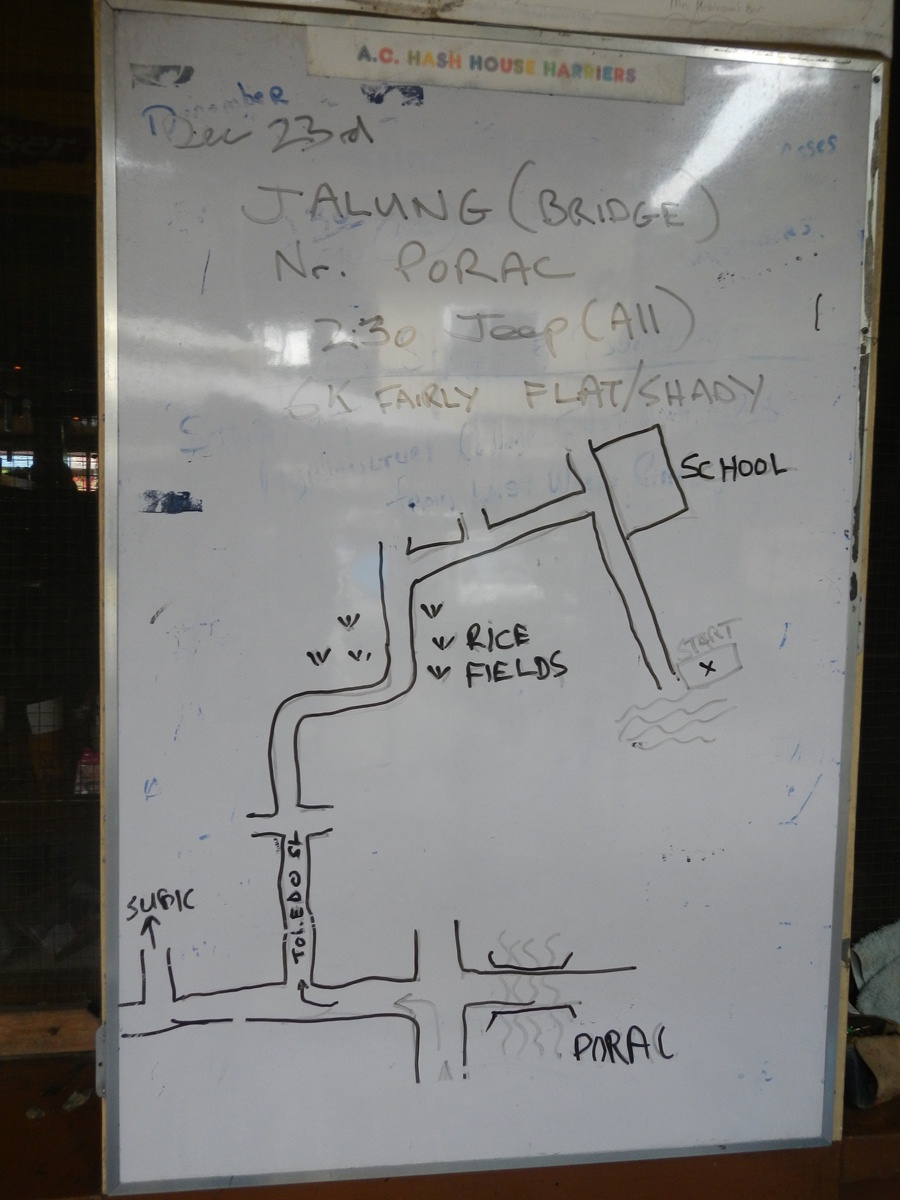 A.C. HASH HOUSE HARRIERS
Dec 23rd
JALUNG (BRIDGE)
Nr. PORAC
2:30 Jeep (All)
6K FAIRLY FLAT/SHADY
SCHOOL
RICE
FIELDS
START
X
TOLEDO St
SUBIC
PORAC